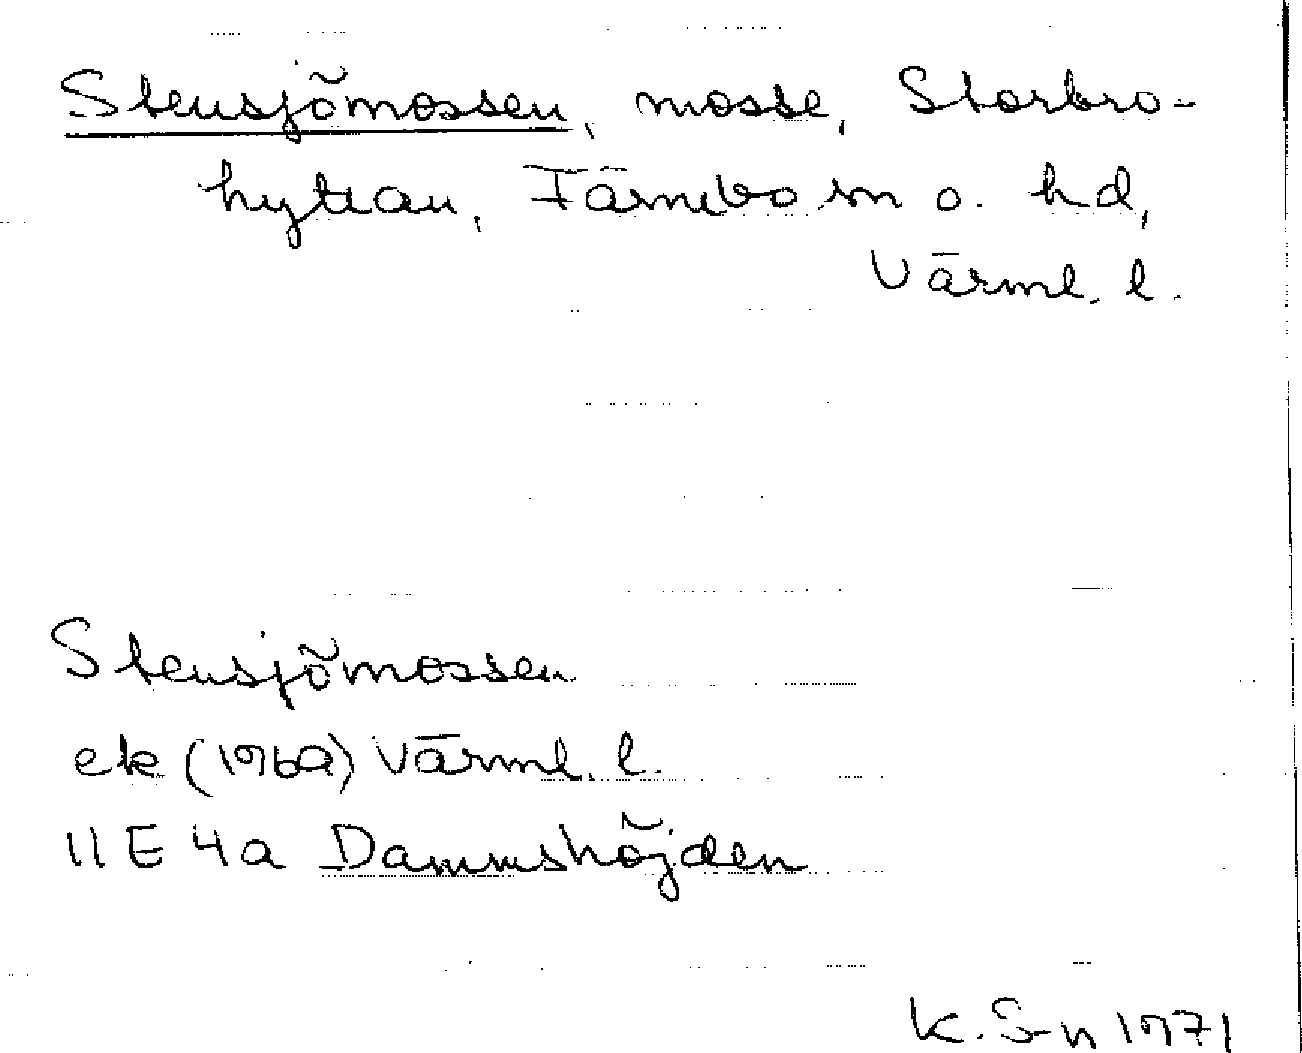 Stensjömossen, mosse, Storbro-
hyttan, Färnebo sn o. hd,
Värml. l.
Stensjömossen
ek (1969) Värml. l.
11E 4a Dammshöjden
K. S-n 1971